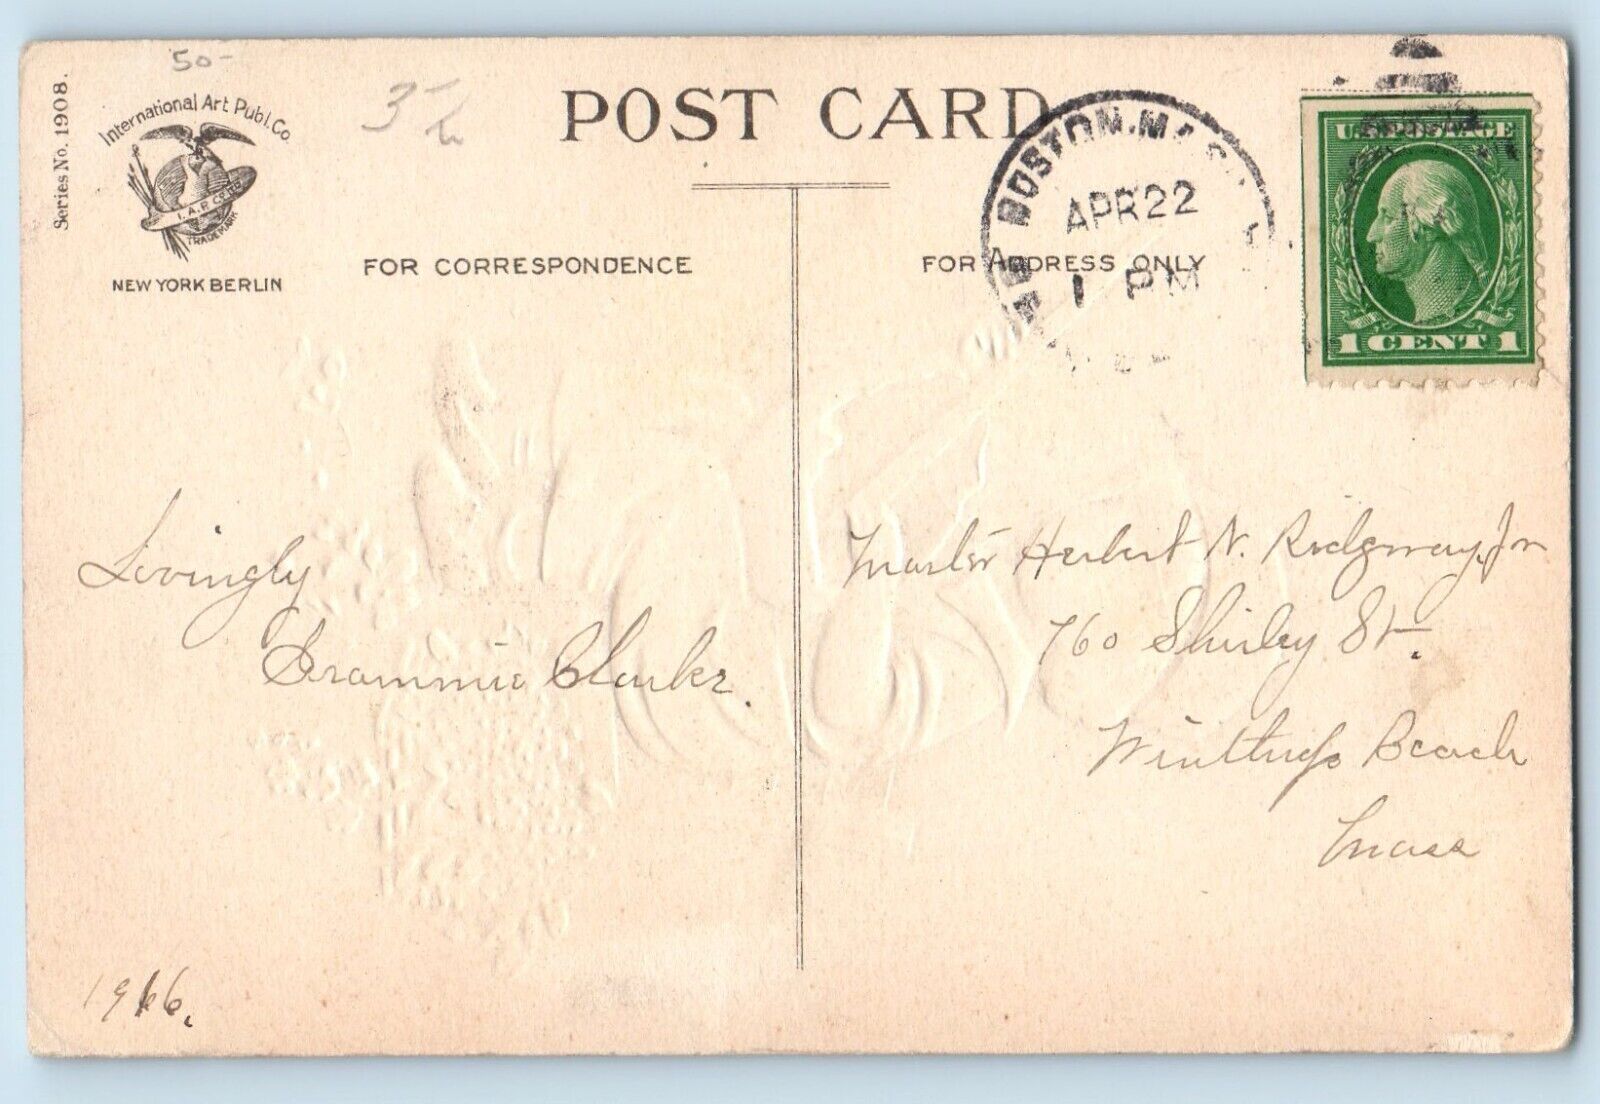 50-
Series No. 1908.
International Art Publ. Co
I. A. P. Co.
TRADEMARK
NEW YORK BERLIN
3-
POST CARD
FOR CORRESPONDENCE
FOR ADDRESS ONLY
BOSTON, MASS.
APR 22
1 PM
U.S. POSTAGE
1 CENT 1
Lovingly
Grammie Clarke.
1916.
Master Herbert N. Ridgway, Jr
760 Shirley St.
Winthrop Beach
Mass